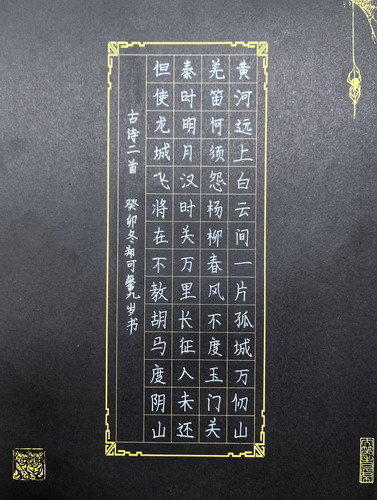 黄河远上白云间一片孤城万仞山
羌笛何须怨杨柳春风不度玉门关
秦时明月汉时关万里长征人未还
但使龙城飞将在不教胡马度阴山
古诗二首 癸卯冬郑可馨九岁书